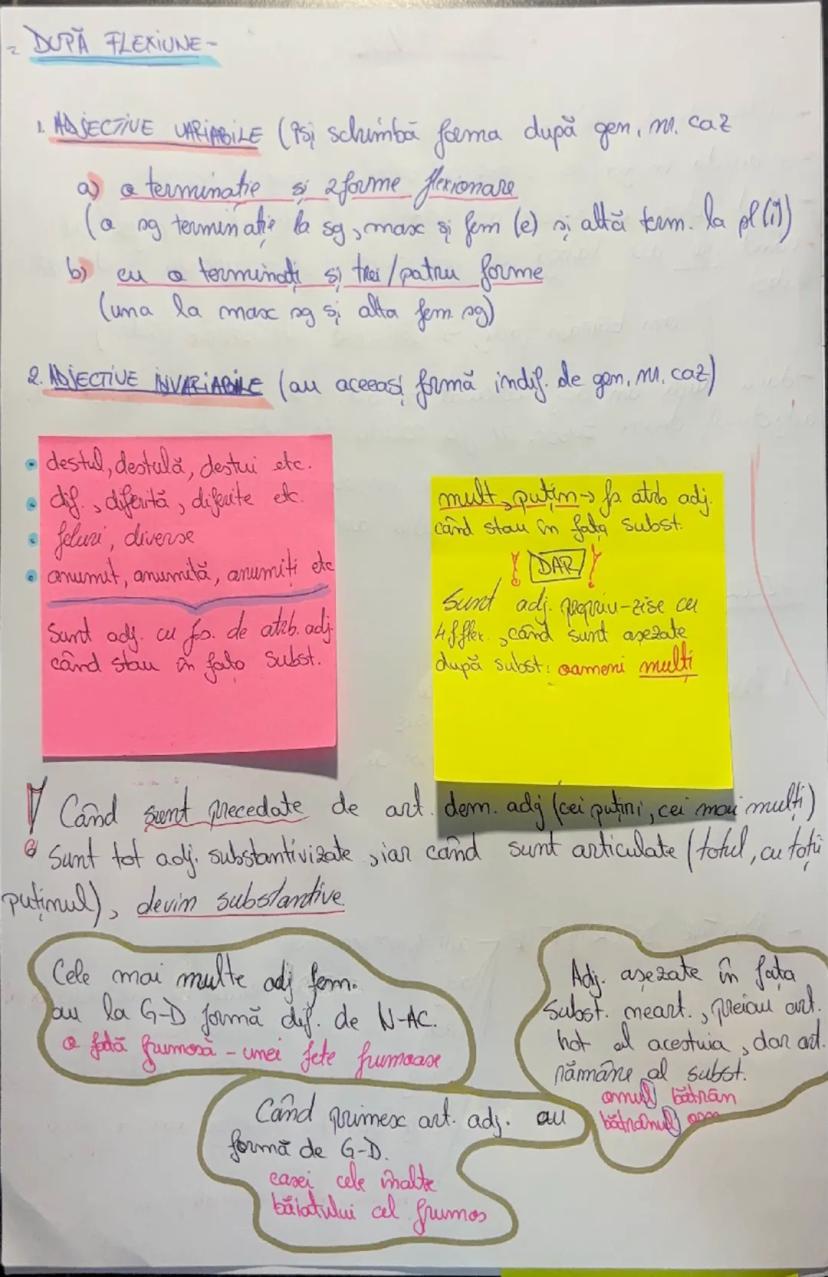 - DUPĂ FLEXIUNE -
1. ADJECTIVE VARIABILE (își schimbă forma după gen, nr. caz
a) o terminație și 2 forme flexionare
(o sg terminație la sg, masc și fem (e) și altă term. la pl (i))
b) cu o terminați și trei/patru forme
(una la masc sg și alta fem sg)
2. ADJECTIVE INVARIABILE (au aceeași formă indif. de gen, nr. caz)
• destul, destulă, destui etc.
• dif., diferită, diferite etc.
• feluri, diverse
• anumit, anumită, anumiți etc
Sunt adj. cu fs. de atrb. adj.
când stau în fața subst.
mult, puțin → fs atrb adj.
când stau în fața subst.
! DAR !
Sunt adj. propriu-zise cu
4 f flex., când sunt așezate
după subst: oameni mulți
! Când sunt precedate de art. dem. adj (cei puțini, cei mai mulți)
Sunt tot adj. substantivizate, iar când sunt articulate (totul, cu toții
puținul), devin substantive.
Cele mai multe adj fem.
au la G-D formă dif. de N-AC.
o fată frumosă - unei fete frumoase
Adj. așezate în fața
subst. neart., preiau art.
hot al acestuia, dar art.
rămâne al subst.
omul bătrân
bătrânul om
Când primesc art. adj. au
formă de G-D.
casei cele înalte
băiatului cel frumos